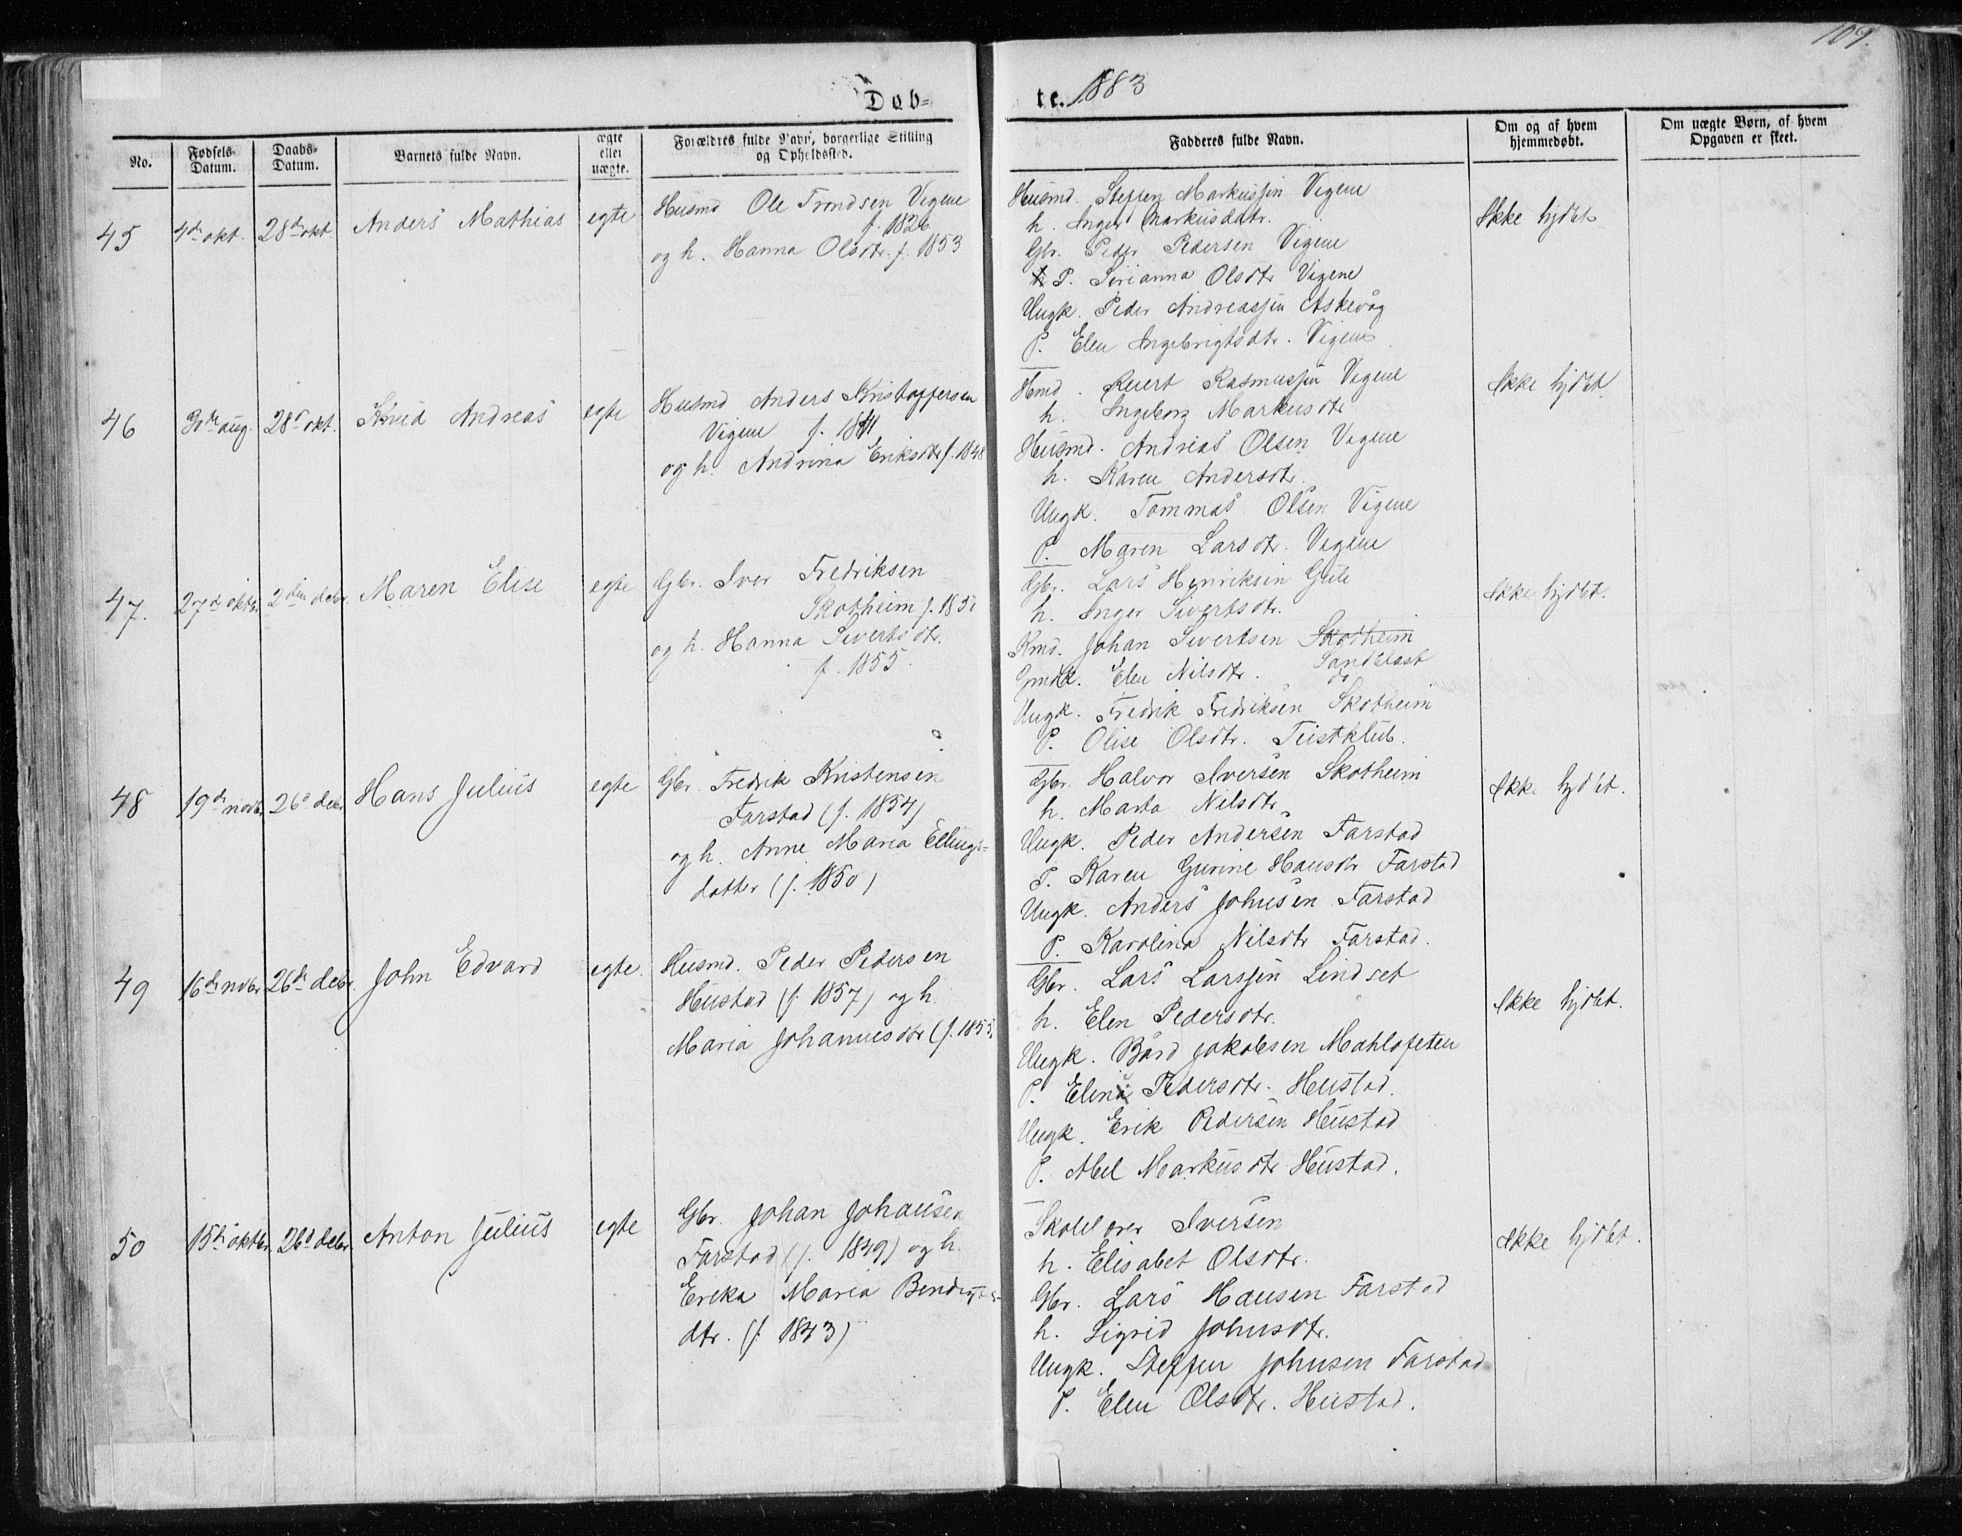 109.
Døb=
te. 1883
No.
Fødsels-
Datum.
Daabs-
Datum.
Barnets fulde Navn.
ægte
eller
uægte.
Forældres fulde Navn, borgerlige Stilling
og Opholdssted.
Fadderes fulde Navn.
Om og af hvem
hjemmedøbt.
Om uægte Børn, af hvem
Opgaven er skeet.
45
4de okt.
28de okt.
Anders Mathias
egte
Husmd Ole Trondsen Vigene
f. 1826
og h. Hanna Olsdtr. f. 1853
Husmd. Steffen Markussen Vigene
h. Inger Markusdatr.
Gbr. Peder Pedersen Vigene
P. Sirianna Olsdtr Vigene
Ungk. Peder Andreassen Askevåg
P. Elen Ingebrigtsdtr. Vigene
Ikke hjdbt
46
30te aug.
28d okt.
Knud Andreas
egte
Husmd Anders Kristoffersen
Vigene f. 1841
og h. Andrina Eriksdtr f. 1848
Hmd. Reiert Rasmussen Vigene
h. Ingeborg Markusdtr
Husmd. Andreas Olsen Vigene
h. Karen Andersdtr.
Ungk. Tommas Olsen Vigene
P. Maren Larsdtr. Vigene
Ikke hjdbt
47.
27de oktr.
2den debr.
Maren Elise
egte
Gbr. Iver Fredriksen
Skotheim f. 185
og h. Hanna Sivertsdtr.
f. 1855.
Gbr. Lars Henriksen Gule
h. Inger Sivertsdtr.
Kmd. Johan Sivertsen Skotheim
Sandblast
Elen Nilsdtr. do
Ungk. Fredrik Fredriksen Skotheim
P. Olise Olsdtr. Tustklub.
Ikke hjdbt.
48
19de novbr.
26d debr.
Hans Julius
egte
Gbr. Fredrik Kristensen
Farstad (f. 1854)
og h. Anne Maria Ellings-
datter (f. 1850)
Gbr. Halvor Iversen Skotheim
h. Marta Nilsdtr
Ungk. Peder Andersen Farstad
P. Karen Gurine Hansdtr Farstad
Ungk. Anders Johnsen Farstad
P. Karolina Nilsdtr Farstad.
Ikke hjdbt.
49
16de novbr.
26de debr.
John Edvard
egte.
Husmd. Peder Pedersen
Hustad (f. 1857) og h.
Maria Johannesdtr (f. 1855.
Gbr. Lars Larssen Lindset
h. Elen Pedersdtr.
Ungk. Bård Jakobsen Mahlefeten
P. Elen Pedersdtr. Hustad.
Ungk. Erik Pedersen Hustad
P. Abel Markusdtr Hustad.
Ikke hjdbt.
50
15de oktbr.
26d debr.
Anton Julius
egte
Gbr. Johan Johansen
Farstad (f. 1849) og h.
Erika Maria Bendigts-
dtr. (f. 1843)
Skolelærer Iversen
h. Elisabet Olsdtr.
Gbr. Lars Hansen Farstad
h. Sigrid Johnsdtr.
Ungk. Steffen Johnsen Farstad
P. Elen Olsdtr. Hustad.
Ikke hjdbt.